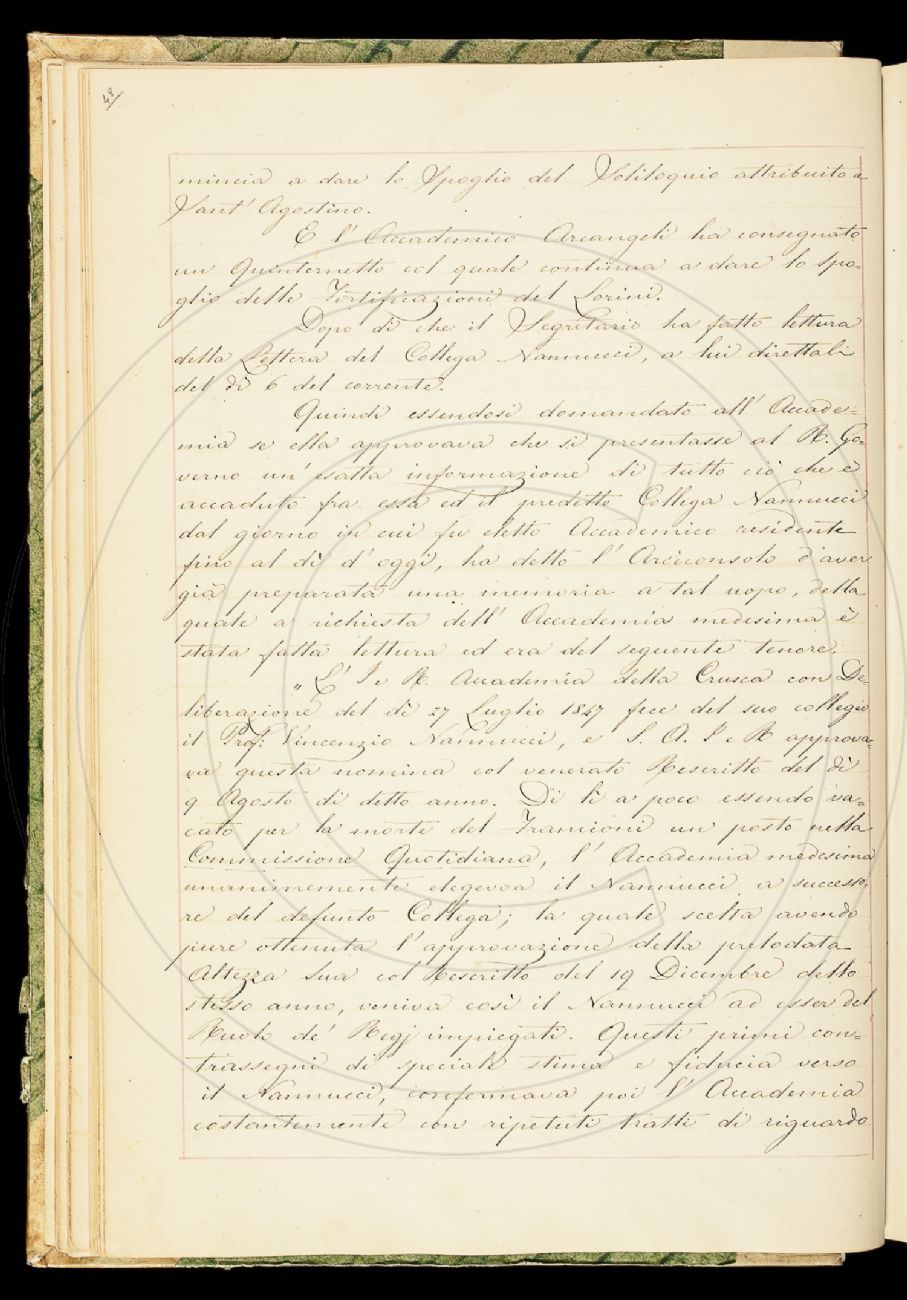 48
mincia a dare lo Spoglio del Soliloquio attribuito a
Sant' Agostino.
E l' Accademico Arcangeli ha consegnato
un Quinternetto col quale continua a dare lo Spo=
glio delle Fortificazioni del Lorini.
Dopo di che il Segretario ha fatto lettura
della Lettera del Collega Nannucci, a lui direttali
del dì 6 del corrente.
Quindi essendosi domandato all' Accade=
mia se ella approvava che si presentasse al R. Go=
verno un' esatta informazione di tutto ciò che è
accaduto fra essa ed il predetto Collega Nannucci
dal giorno in cui fu eletto Accademico residente
fino al dì d' oggi, ha detto l' Arciconsolo d'aver
già preparata una memoria a tal uopo, della
quale a richiesta dell' Accademia medesima è
stata fatta lettura ed era del seguente tenore.
" L' I e R. Accademia della Crusca con De=
liberazione del dì 27 Luglio 1847 fece del suo collegio
il Prof: Vincenzio Nannucci, e S. A. I e R approva=
va questa nomina col venerato Rescritto del dì
9 Agosto di detto anno. Di lì a poco essendo va=
cato per la morte del Francioni un posto nella
Commissione Quotidiana, l' Accademia medesima
unanimemente eleggeva il Nannucci a successo=
re del defunto Collega; la quale scelta avendo
pure ottenuta l' approvazione della prelodata
Altezza Sua col Rescritto del 19 Dicembre dello
stesso anno, veniva così il Nannucci ad esser del
Ruolo de' Regj impiegati. Questi primi con=
trassegni di speciale stima e fiducia verso
il Nannucci, confermava poi l' Accademia
costantemente con ripetuti tratti di riguardo